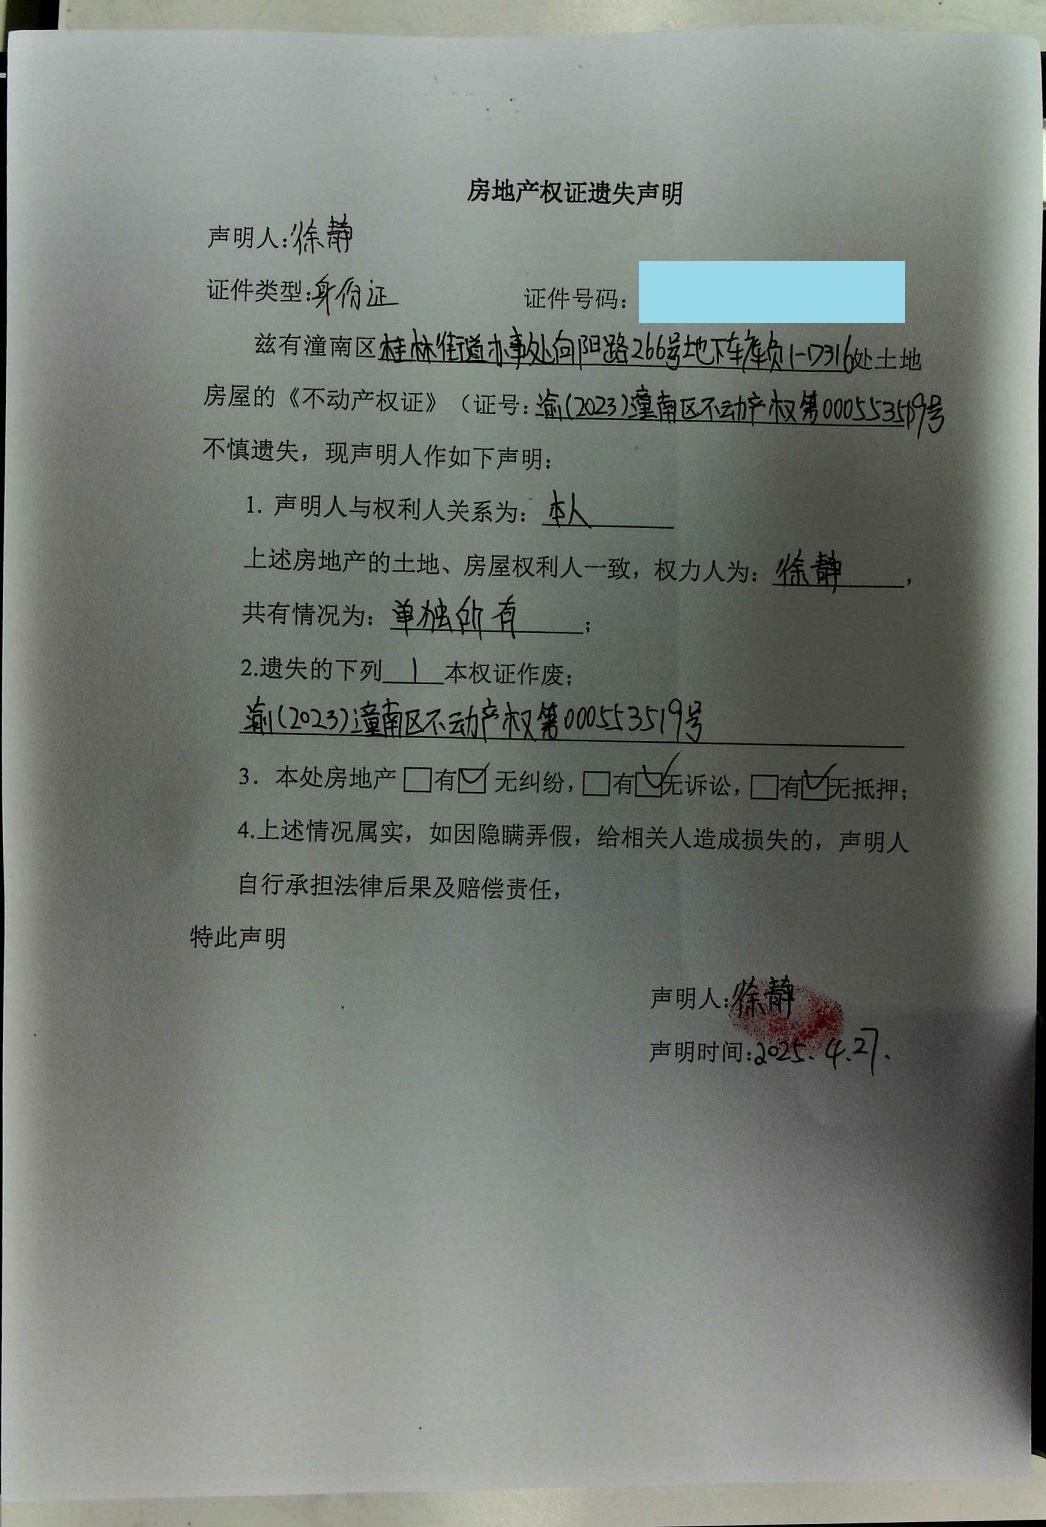 房地产权证遗失声明
声明人:徐静
证件类型:身份证 证件号码:
兹有潼南区桂林街道办事处向阳路266号地下车库负1-D316处土地
房屋的《不动产权证》（证号:渝(2023)潼南区不动产权第000553519号
不慎遗失，现声明人作如下声明:
1. 声明人与权利人关系为: 本人
上述房地产的土地、房屋权利人一致，权力人为: 徐静，
共有情况为: 单独所有；
2.遗失的下列 1 本权证作废；
渝(2023)潼南区不动产权第000553519号
3. 本处房地产□有☑无纠纷，□有☑无诉讼，□有☑无抵押；
4.上述情况属实，如因隐瞒弄假，给相关人造成损失的，声明人
自行承担法律后果及赔偿责任，
特此声明
声明人:徐静
声明时间:2025.4.27.